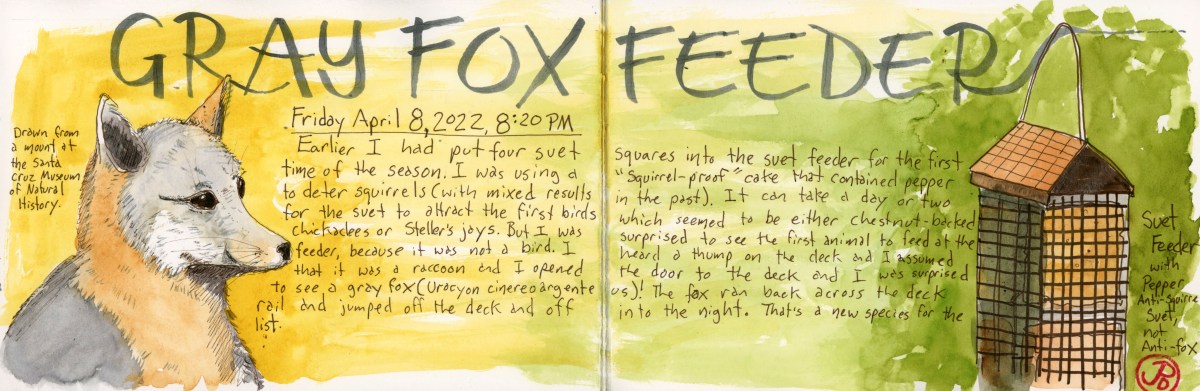 GRAY FOX FEEDER
Drawn from
a mount at
the Santa
Cruz Museum
of Natural
History.
Friday April 8, 2022, 8:20 PM
Earlier I had put four suet squares into the suet feeder for the first
time of the season. I was using a "Squirrel-proof" cake that contained pepper
to deter squirrels (with mixed results in the past). It can take a day or two
for the suet to attract the first birds which seemed to be either chestnut-backed
chickadees or Steller's jays. But I was surprised to see the first animal to feed at the
feeder, because it was not a bird. I heard a thump on the deck and I assumed
that it was a raccoon and I opened the door to the deck and I was surprised
to see a gray fox (Urocyon cinereoargente us)! The fox ran back across the deck
rail and jumped off the deck and off into the night. That's a new species for the
list.
Suet
Feeder
with
Pepper
Anti-Squirrel
Suet,
not
Anti-fox